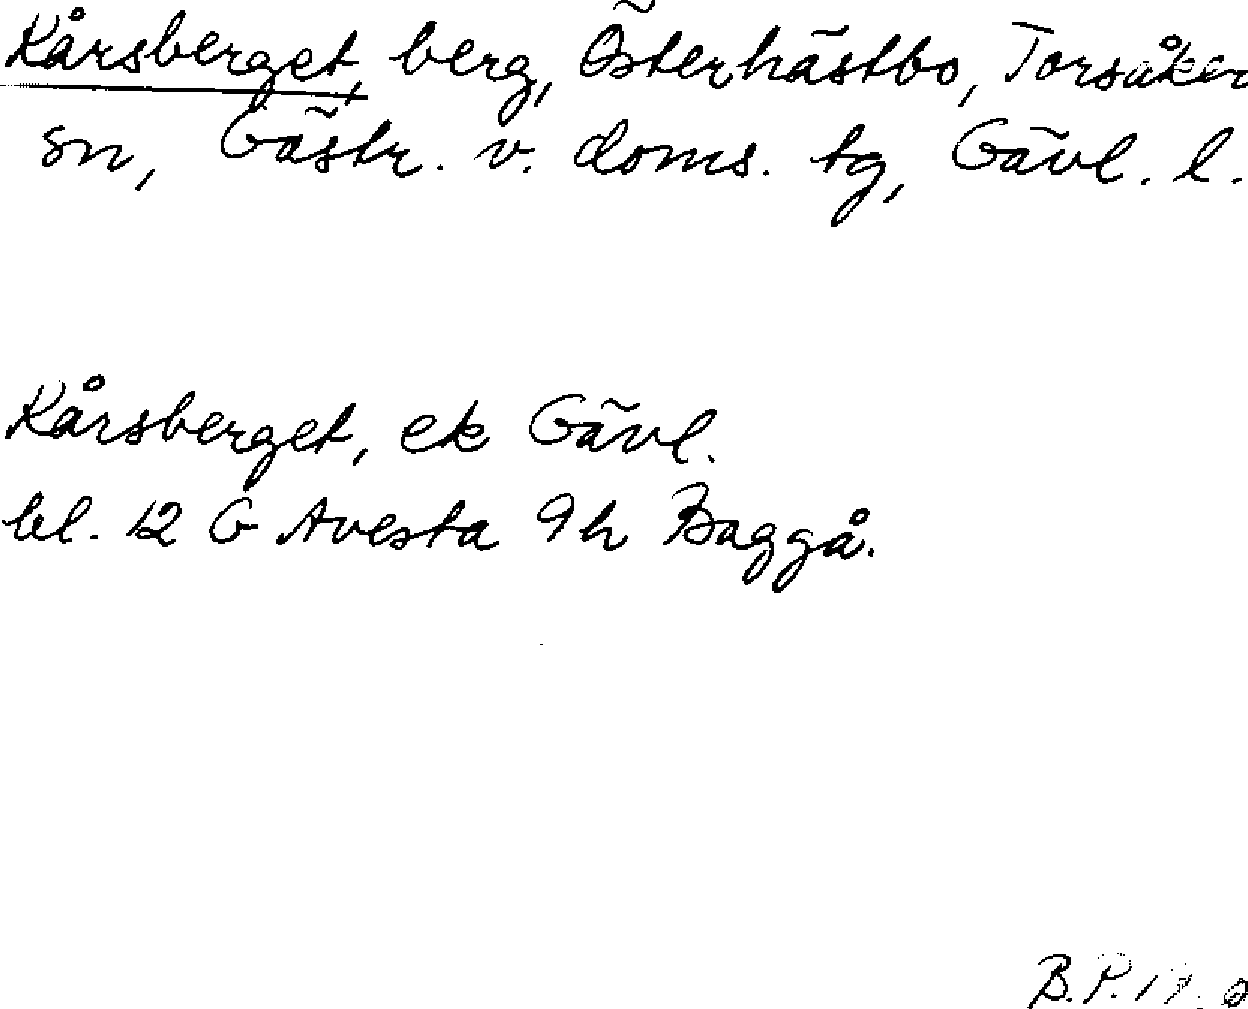 Kårsberget, berg, Österhästbo, Torsåker
sn, Gästr. v. doms. tg, Gävl. l.
Kårsberget, ek Gävl.
bl. 12 G Avesta 9h Baggå.
B.P.